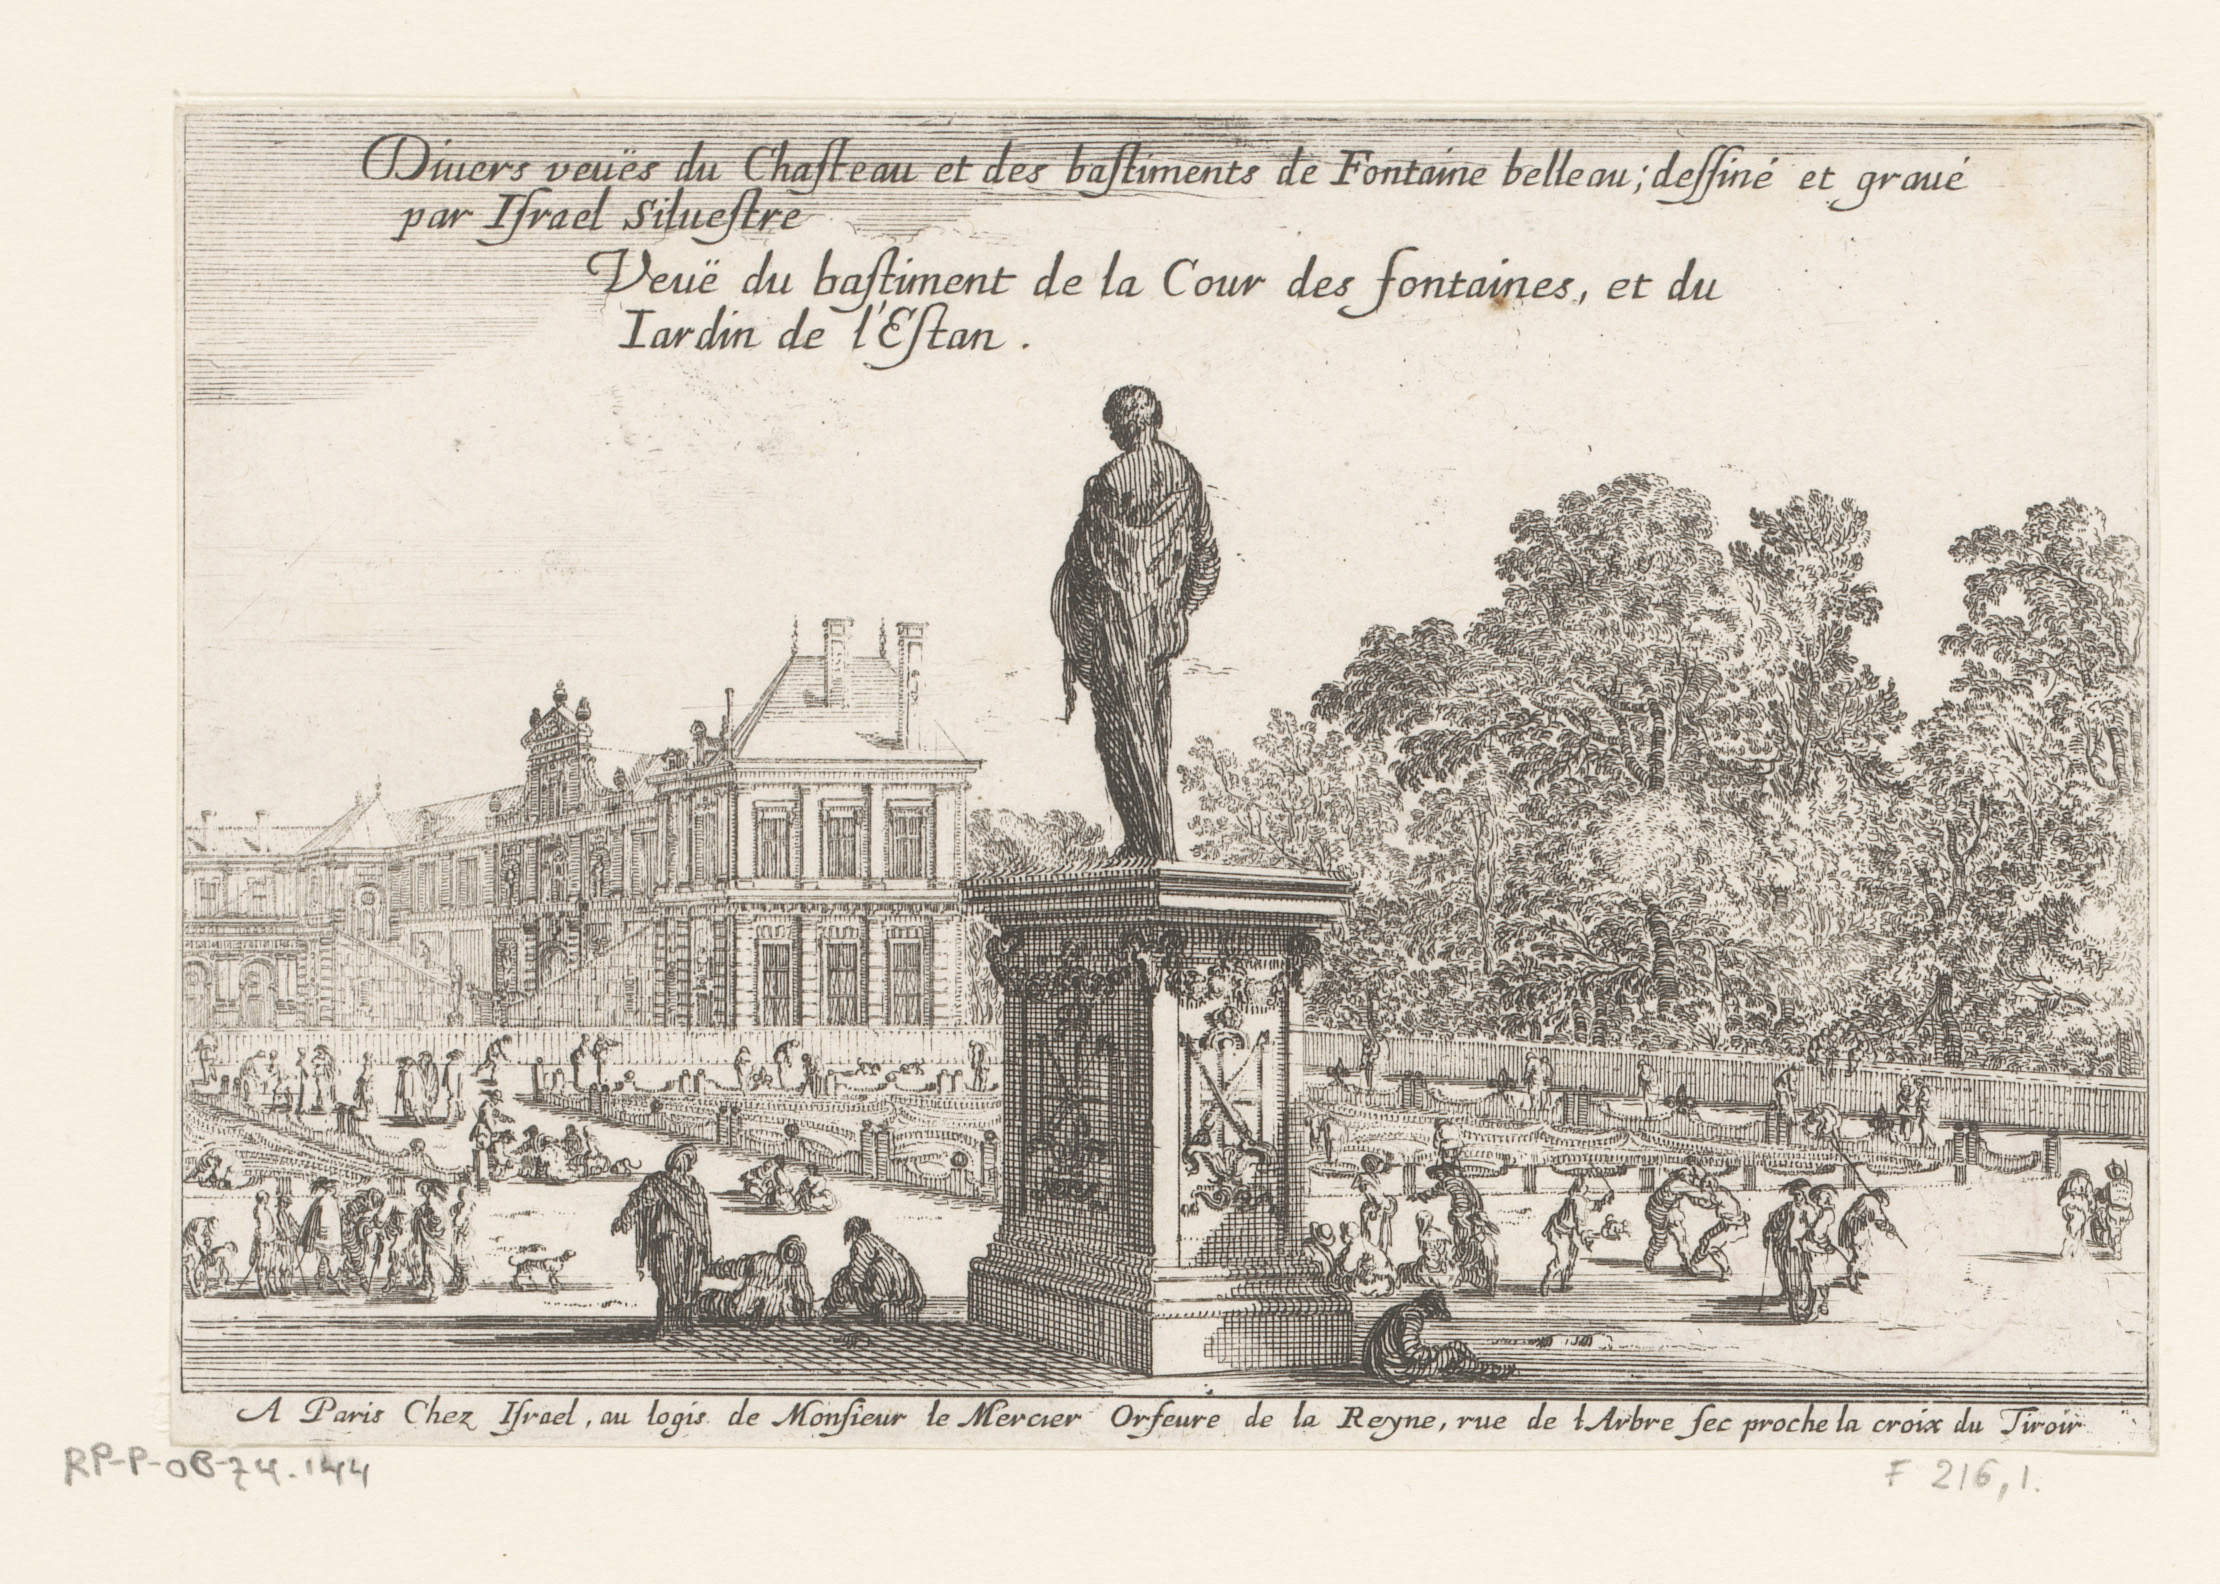 Diuers veuës du Chaſteau et des baſtiments de Fontaine belleau; deſſiné et graué
par Iſrael Silueſtre
Veuë du baſtiment de la Cour des fontaines, et du
Iardin de l'Eſtan.
A Paris Chez Iſrael, au logis de Monſieur le Mercier Orfeure de la Reyne, rue de l'Arbre ſec proche la croix du Tiroir
RP-P-OB-74.144
F 216, 1.